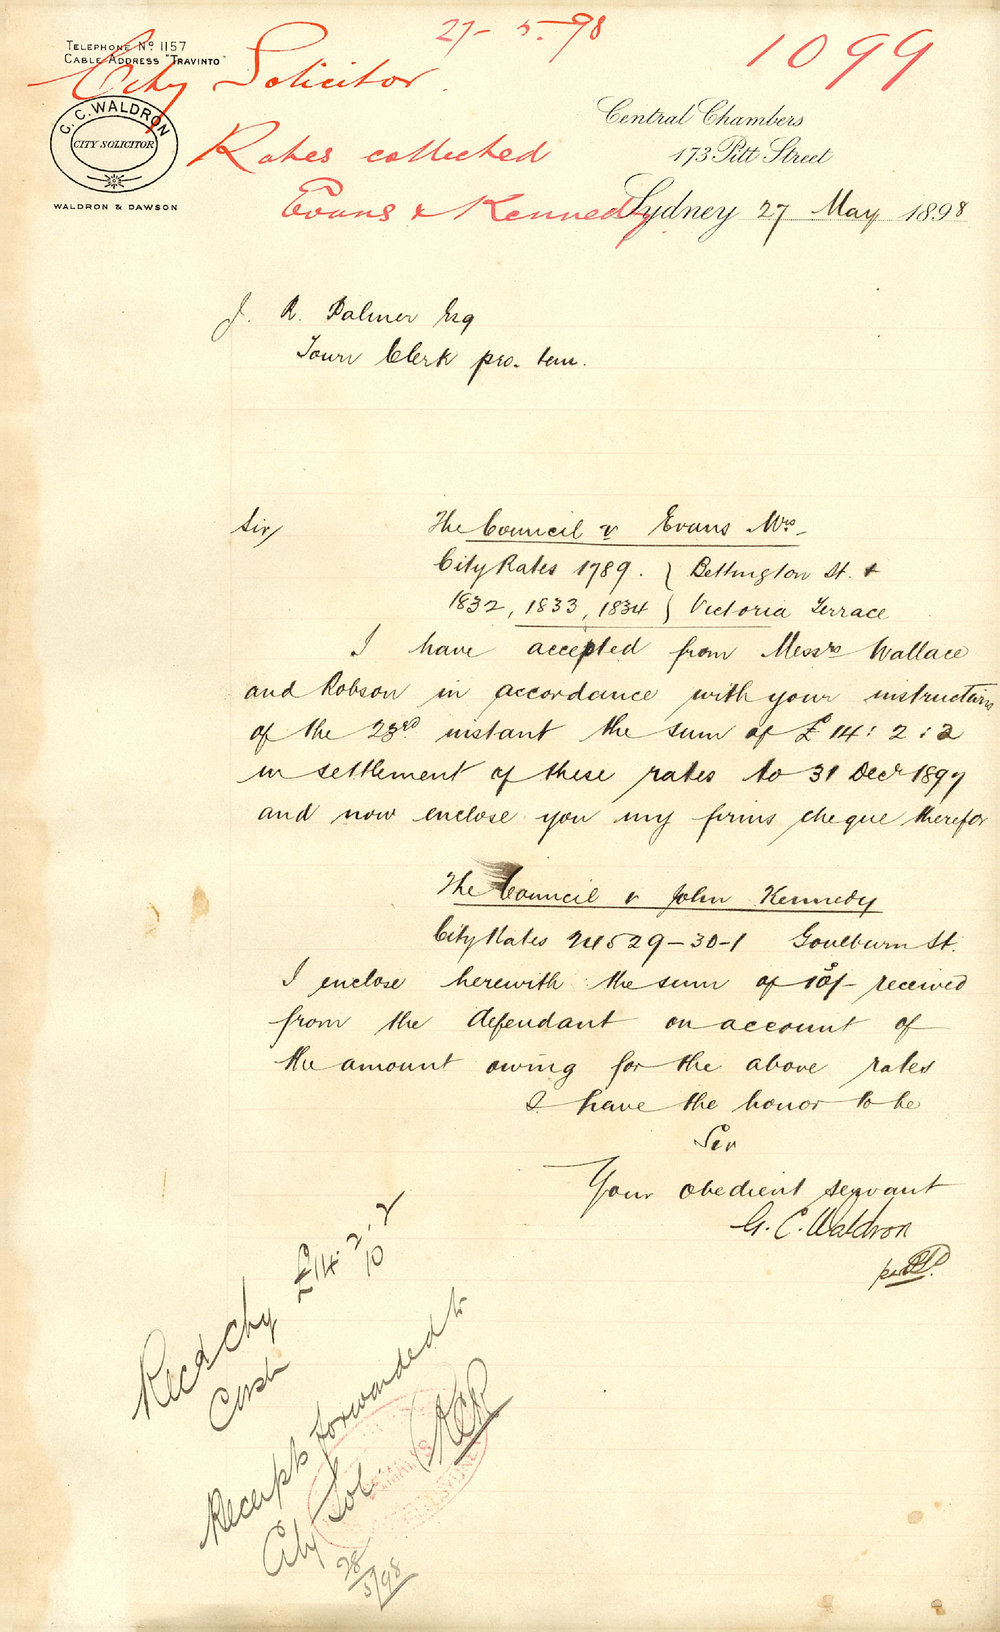 27-5-98
1099
TELEPHONE No 1157
CABLE ADDRESS "TRAVINTO"
City Solicitor
G. C. WALDRON
CITY SOLICITOR
WALDRON & DAWSON
Rates collected
Evans & Kennedy
Central Chambers
173 Pitt Street
Sydney 27 May 1898
J. R. Palmer Esq
Town Clerk pro. tem.
Sir
The Council v Evans Mrs
City Rates 1789. } Bettington St. &
1832, 1833, 1834 } Victoria Terrace
I have accepted from Messrs Wallace
and Robson in accordance with your instructions
of the 23rd instant the sum of £14:2:2
in settlement of these rates to 31 Decr 1897
and now enclose you my firms cheque therefor
The Council v John Kennedy
City Rates 24529-30-1 Goulburn St.
I enclose herewith the sum of 10/- received
from the defendant on account of
the amount owing for the above rates
I have the honor to be
Sir
Your obedient servant
G. C. Waldron
per
Recd Chq £14.2.2
Cash 10
Receipts forwarded to
City Sol
28/5/98